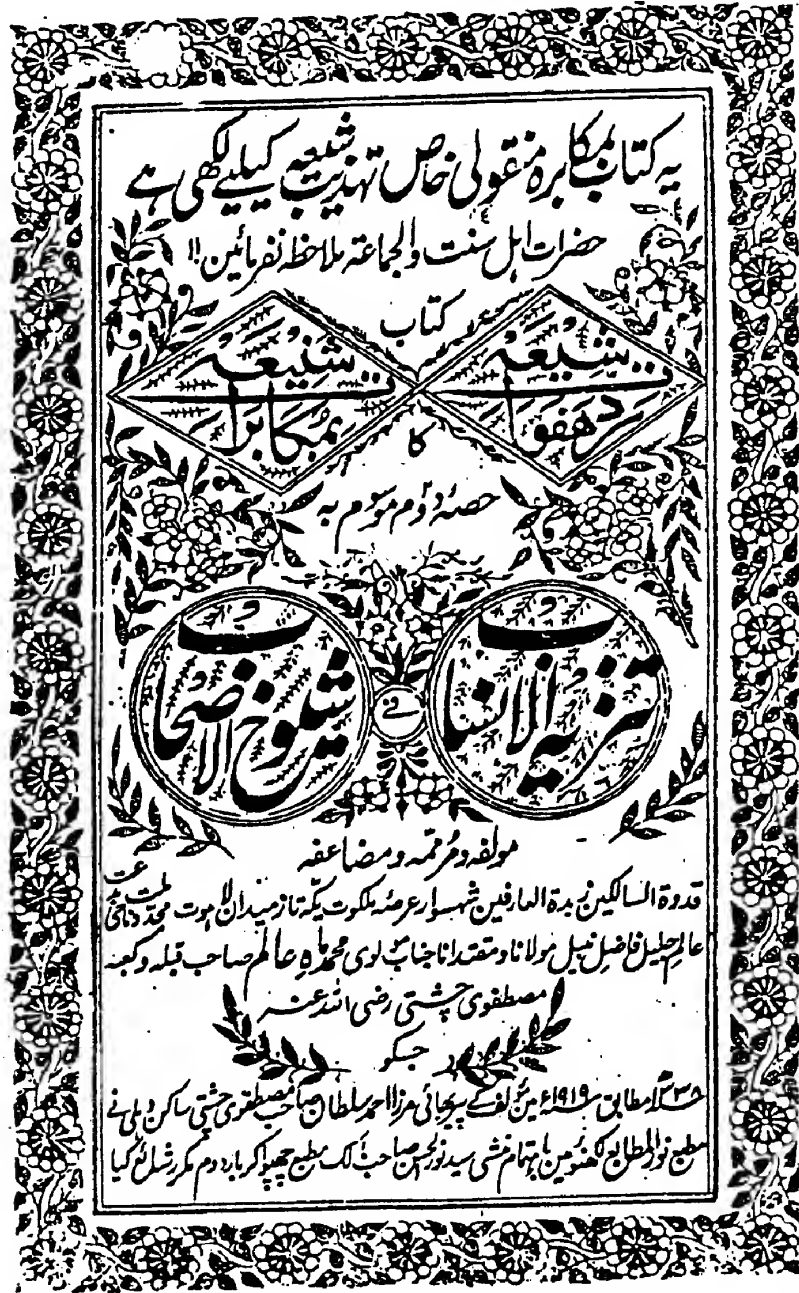 یہ کتاب بمکابرہ منقولی خاص تہذیب شیعہ کیلیے لکھی ہے
حضرات اہل سنت والجماعۃ ملاحظہ نفرمائین!!
کتاب
شیعہ
در هفوات
شنیعہ
بمکابرات
کا
حصۂ دوم موسوم بہ
تنزیہ الانساب
فے
شیوخ الاصحاب
مولفہ و مرممہ و مضاعفہ
قدوۃ السالکین زبدۃ العارفین شہسوار عرصۂ ملکوت یکہ تاز میدان لاہوت مجدد
عالم جلیل فاضل نبیل مولانا و مقتدانا جناب مولوی محمد ماہ عالم صاحب قبلہ و کعبہ
مصطفوی چشتی رضی اللہ عنہ
جسکو
۱۳۳۸ مطابق سنہ ۱۹۱۹ء مین مؤلف کے پیر بھائی مرزا احمد سلطان صاحب مصطفوی چشتی ساکن دہلی نے
مطبع نور المطابع لکھنؤ مین باہتمام منشی سید نور الحسن صاحب مالک مطبع چھپوا کر بار دوم مکرر شائع کیا